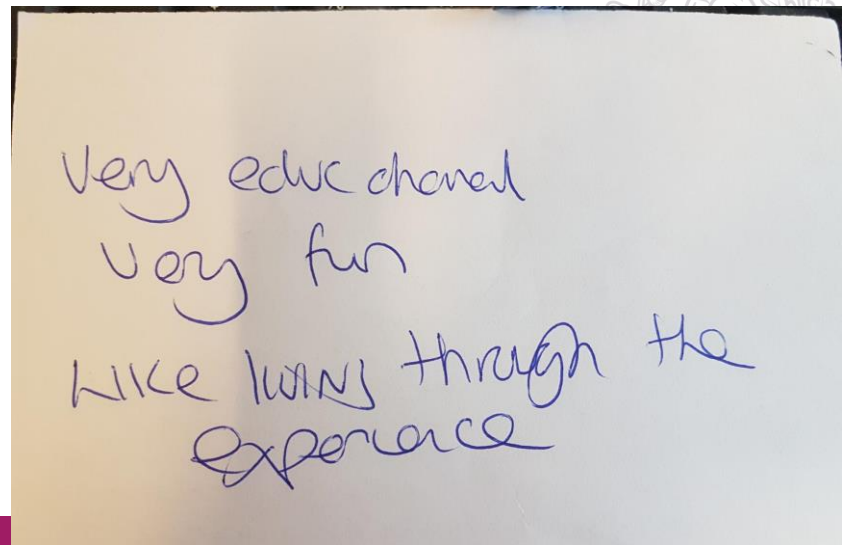 Very educational
very fun
Like living through the
experience